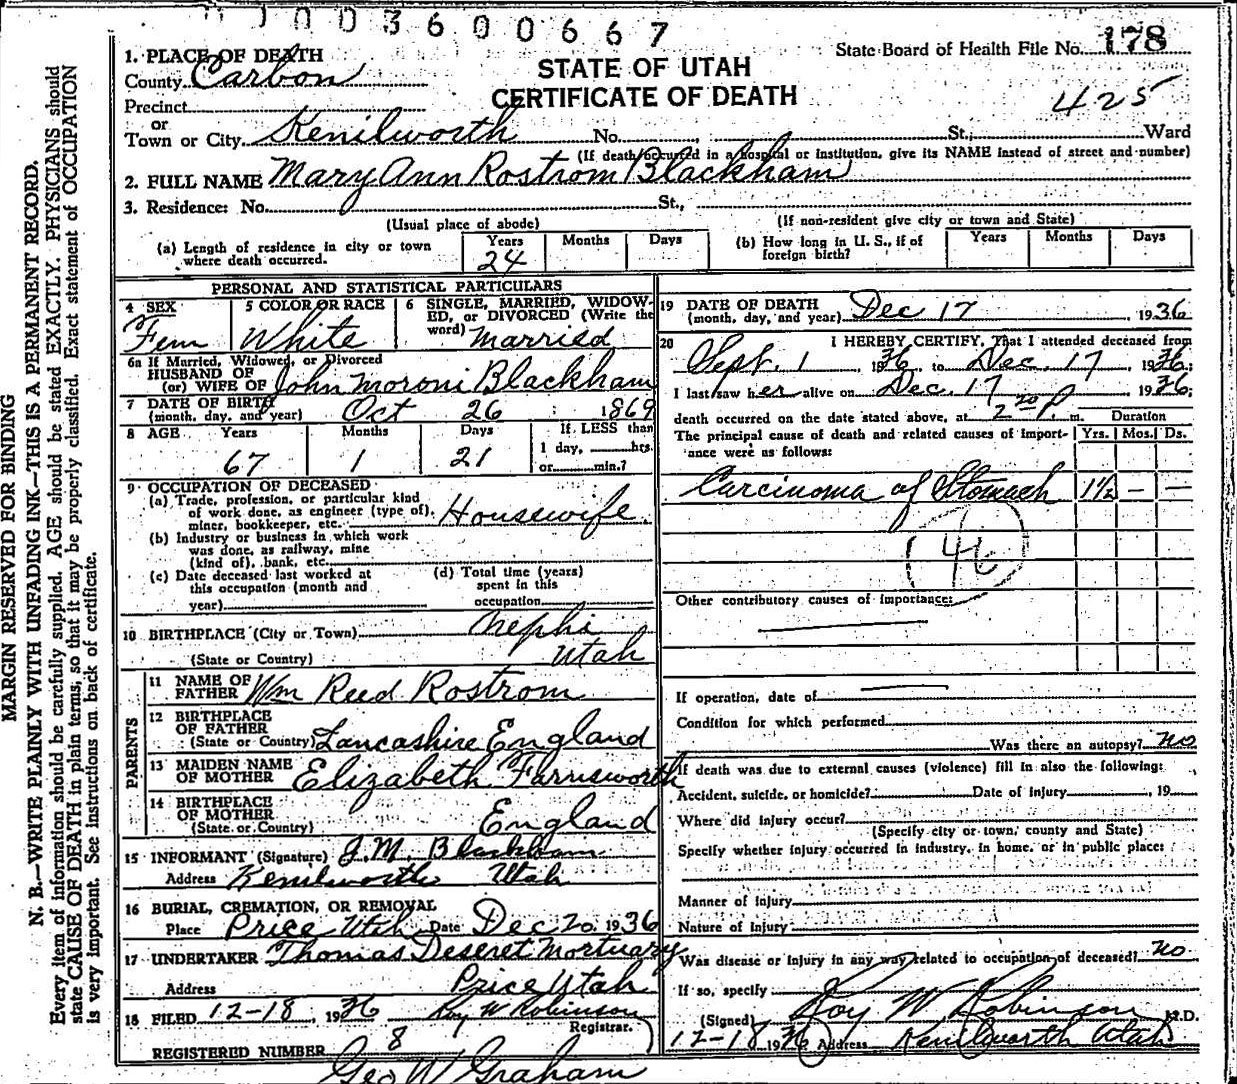 1003600667
State Board of Health File No. 178
1. PLACE OF DEATH
STATE OF UTAH
County Carbon
CERTIFICATE OF DEATH
Precinct
425
or
Town or City Kenilworth No. St., Ward
(If death occurred in a hospital or institution, give its NAME instead of street and number)
2. FULL NAME Mary Ann Rostrom Blackham
3. Residence: No. St.,
(Usual place of abode) (If non-resident give city or town and State)
(a) Length of residence in city or town where death occurred. Years 24 Months Days
(b) How long in U. S., if of foreign birth? Years Months Days
PERSONAL AND STATISTICAL PARTICULARS
4 SEX Fem
5 COLOR OR RACE White
6 SINGLE, MARRIED, WIDOWED, or DIVORCED (Write the word) Married
6a If Married, Widowed, or Divorced
HUSBAND OF
(or) WIFE OF John Moroni Blackham
7 DATE OF BIRTH
(month, day, and year) Oct 26 1869
8 AGE Years 67 Months 1 Days 21 If LESS than 1 day, hrs. or min.?
9 OCCUPATION OF DECEASED
(a) Trade, profession, or particular kind
of work done, as engineer (type of),
miner, bookkeeper, etc. Housewife.
(b) Industry or business in which work
was done, as railway, mine
(kind of), bank, etc.
(c) Date deceased last worked at
this occupation (month and
year)
(d) Total time (years)
spent in this
occupation
10 BIRTHPLACE (City or Town) Nephi
(State or Country) Utah
PARENTS
11 NAME OF FATHER Wm Reed Rostrom
12 BIRTHPLACE OF FATHER
(State or Country) Lancashire England
13 MAIDEN NAME OF MOTHER Elizabeth Farnsworth
14 BIRTHPLACE OF MOTHER
(State or Country) England
15 INFORMANT (Signature) J. M. Blackham
Address Kenilworth Utah
16 BURIAL, CREMATION, OR REMOVAL
Place Price Utah Date Dec 20, 1936
17 UNDERTAKER Thomas Deseret Mortuary
Address Price Utah
18 FILED 12-18, 1936 Roy W Robinson
Registrar.
REGISTERED NUMBER 8
Geo W Graham
19 DATE OF DEATH
(month, day, and year) Dec 17, 1936
20 I HEREBY CERTIFY, That I attended deceased from
Sept. 1 1936, to Dec. 17, 1936;
I last saw her alive on Dec. 17 1936;
death occurred on the date stated above, at 2 20 P. m.
Duration
The principal cause of death and related causes of importance were as follows: Yrs. Mos. Ds.
Carcinoma of Stomach 1½ — —
46
Other contributory causes of importance:
If operation, date of
Condition for which performed
Was there an autopsy? no
If death was due to external causes (violence) fill in also the following:
Accident, suicide, or homicide? Date of injury, 19
Where did injury occur?
(Specify city or town, county and State)
Specify whether injury occurred in industry, in home, or in public place:
Manner of injury
Nature of injury
Was disease or injury in any way related to occupation of deceased? no
If so, specify
(Signed) Roy W Robinson M.D.
12-18 1936 Address Kenilworth Utah
MARGIN RESERVED FOR BINDING
N. B.—WRITE PLAINLY WITH UNFADING INK—THIS IS A PERMANENT RECORD.
Every item of information should be carefully supplied. AGE should be stated EXACTLY. PHYSICIANS should
state CAUSE OF DEATH in plain terms, so that it may be properly classified. Exact statement of OCCUPATION
is very important. See instructions on back of certificate.